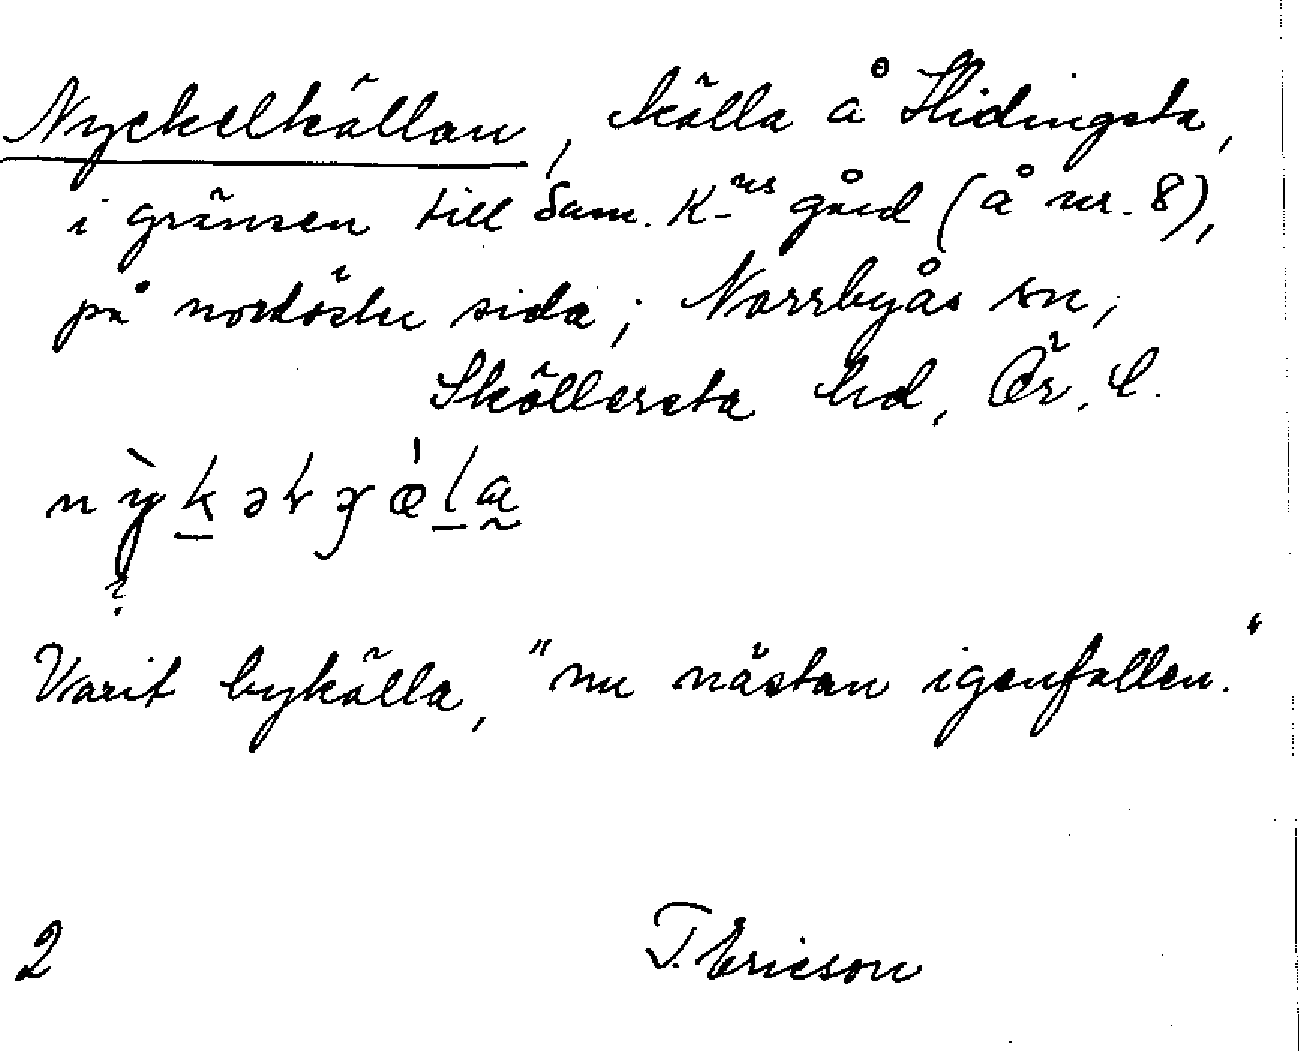 Nyckelkällan, källa å Hidingsta,
i gränsen till Sam. K-ns gård (å nr. 8),
på nordöstra sida; Norrbyås sn,
Sköllersta hd, Ör. l.
Varit bykälla, "nu nästan igenfallen."
2 T. Ericson